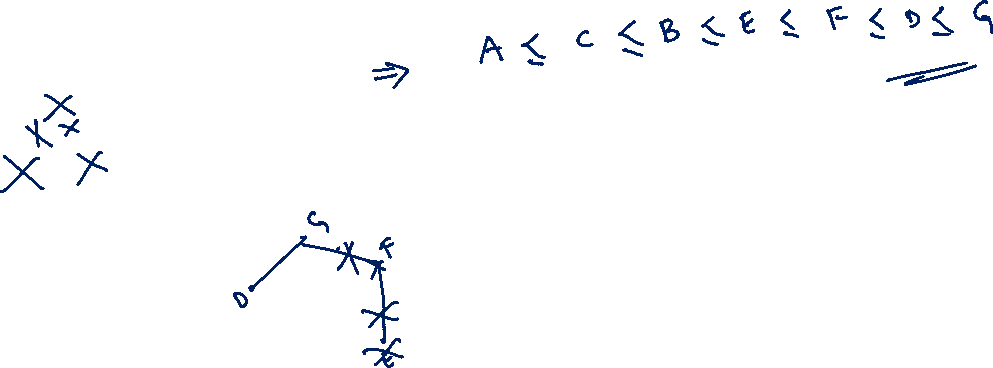 ⇒ A ≤ C ≤ B ≤ E ≤ F ≤ D ≤ G
G
F
D
E